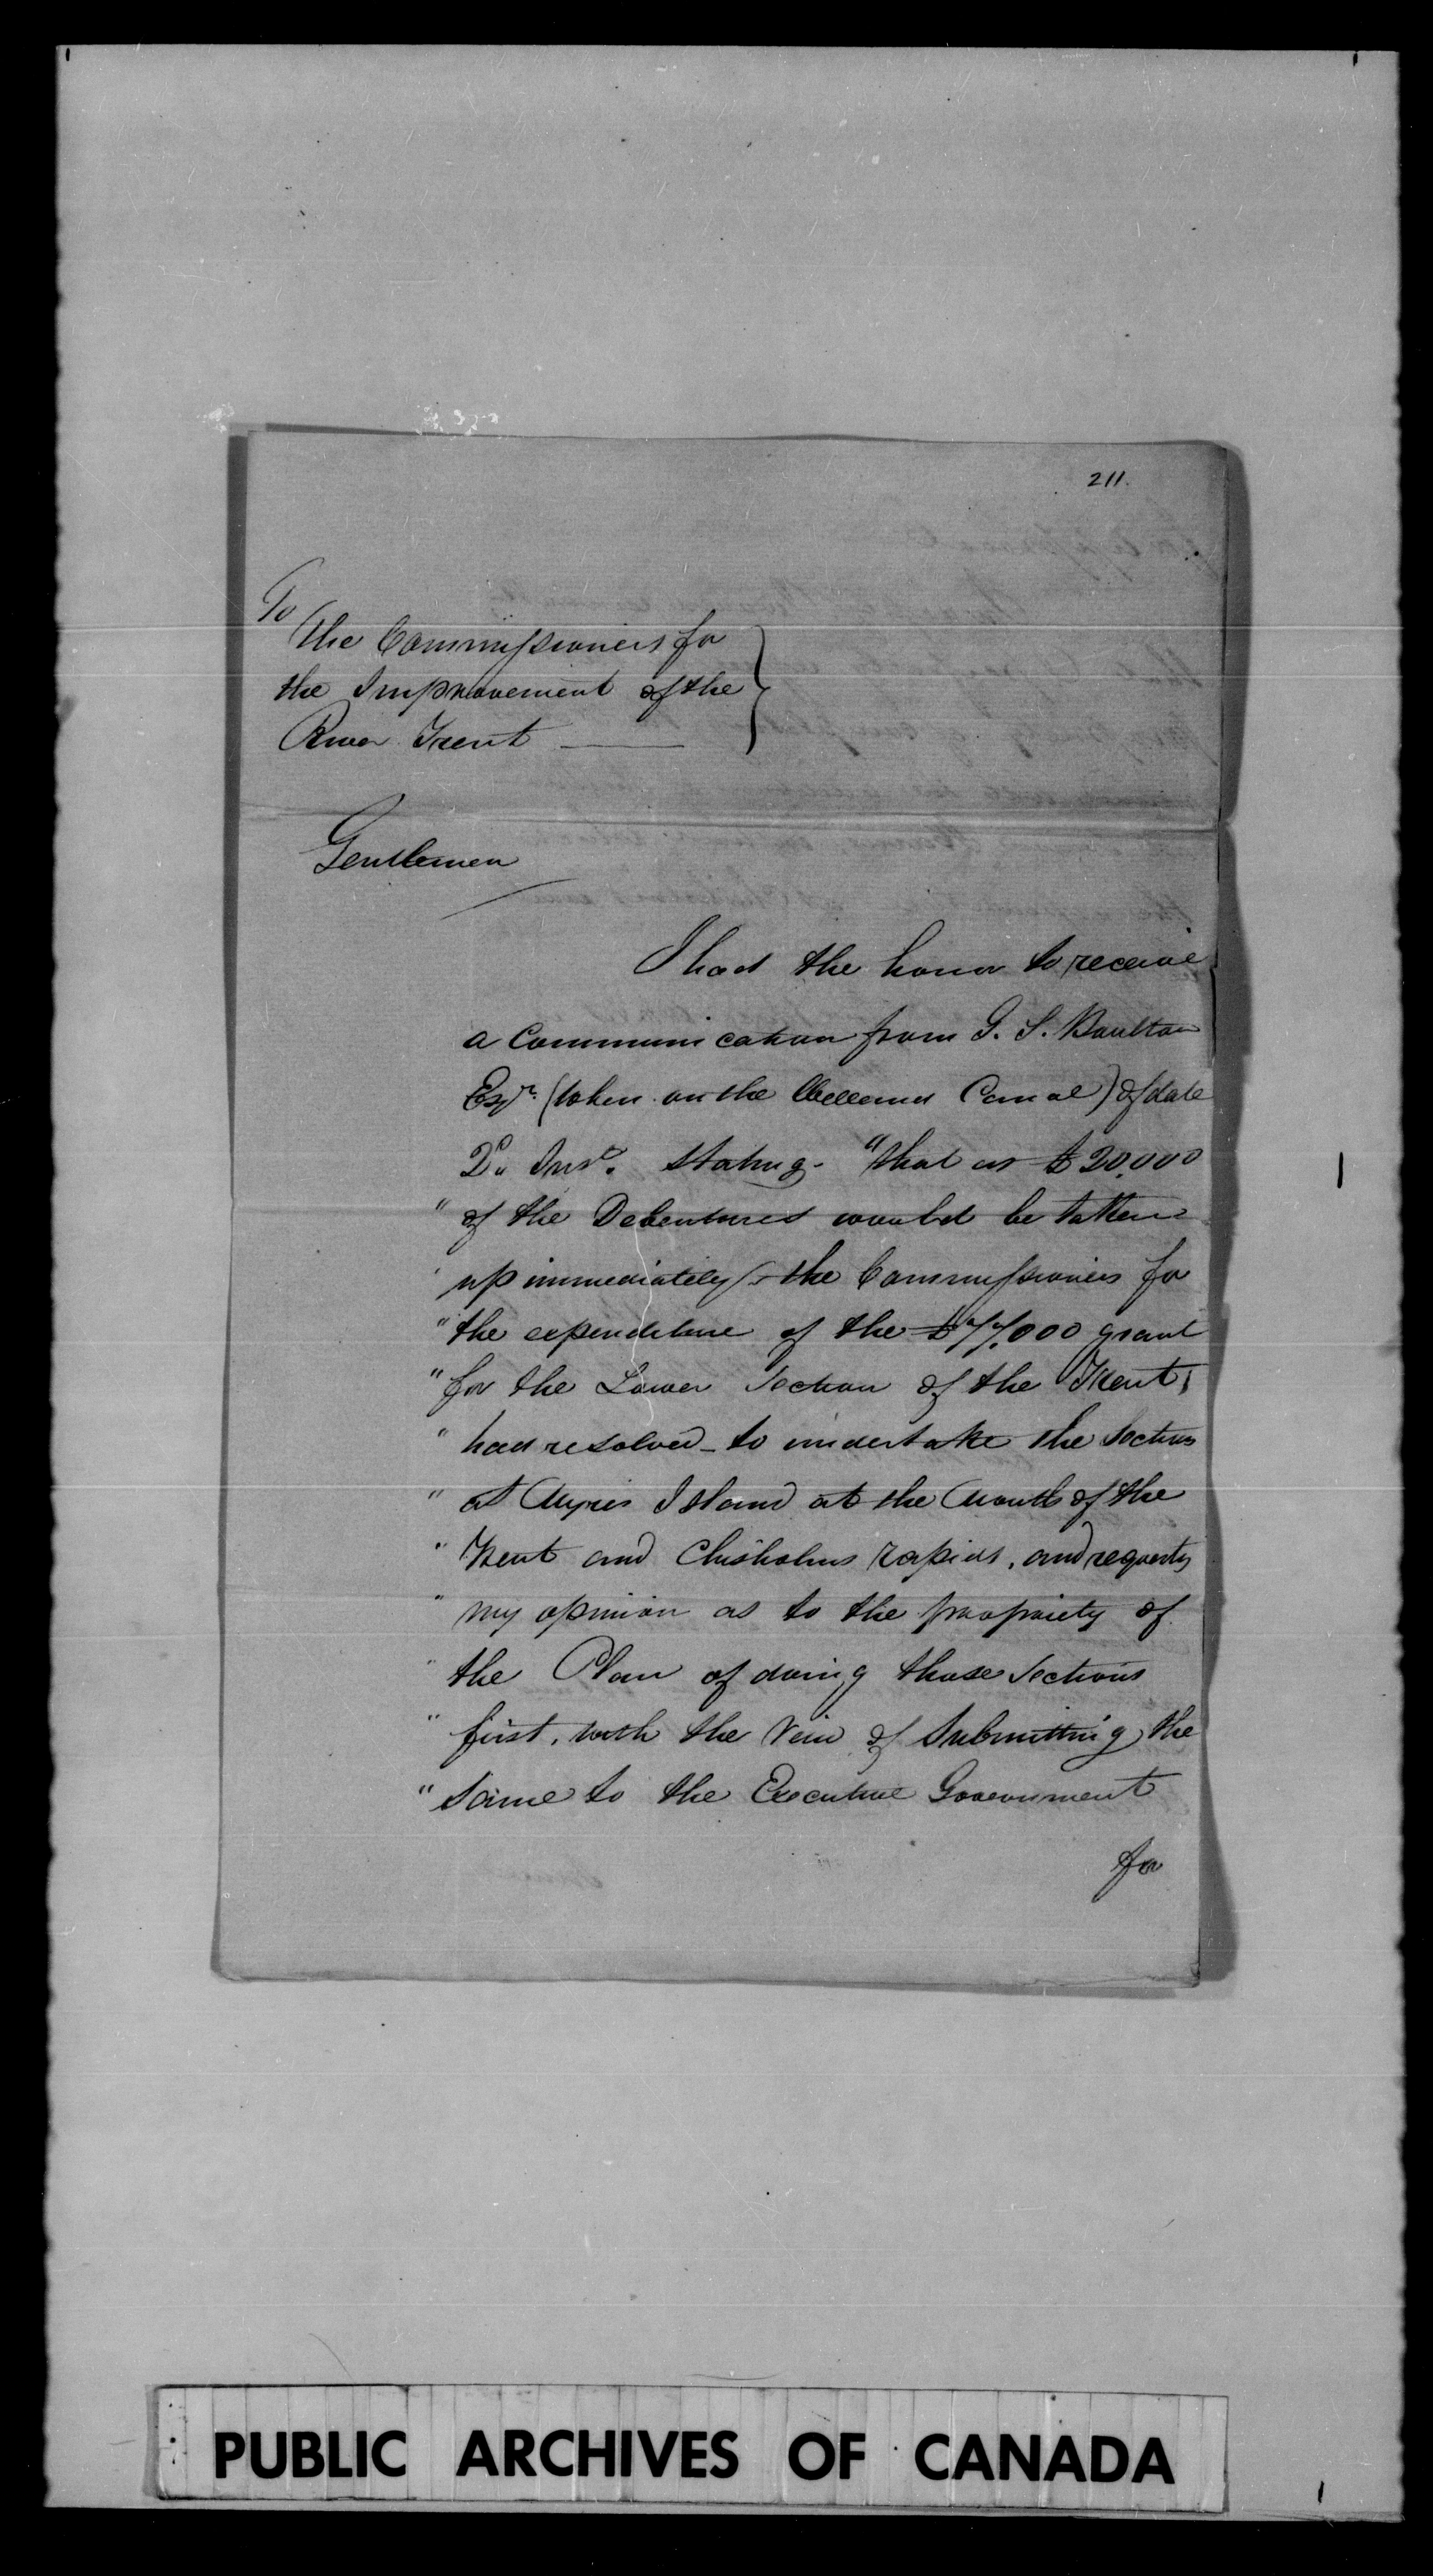 211.
To
The Commissioners for
the Improvement of the
River Trent
Gentlemen
I had the honor to receive
a Communication from G. S. Boulton
Esqr. (when on the Welland Canal) of date
2d. Inst. stating - "that as £20,000
" of the Debentures would be taken
" up immediately, the Commissioners for
" the expenditure of the £77,000 grant
" for the Lower Section of the Trent,
" had resolved to undertake the Sections
" at Myers Island at the Mouth of the
" Trent and Chisholms rapids, and requests
" my opinion as to the propriety of
" the Plan of doing those Sections
" first, with the View of Submitting the
" Same to the Executive Government
for
PUBLIC ARCHIVES OF CANADA